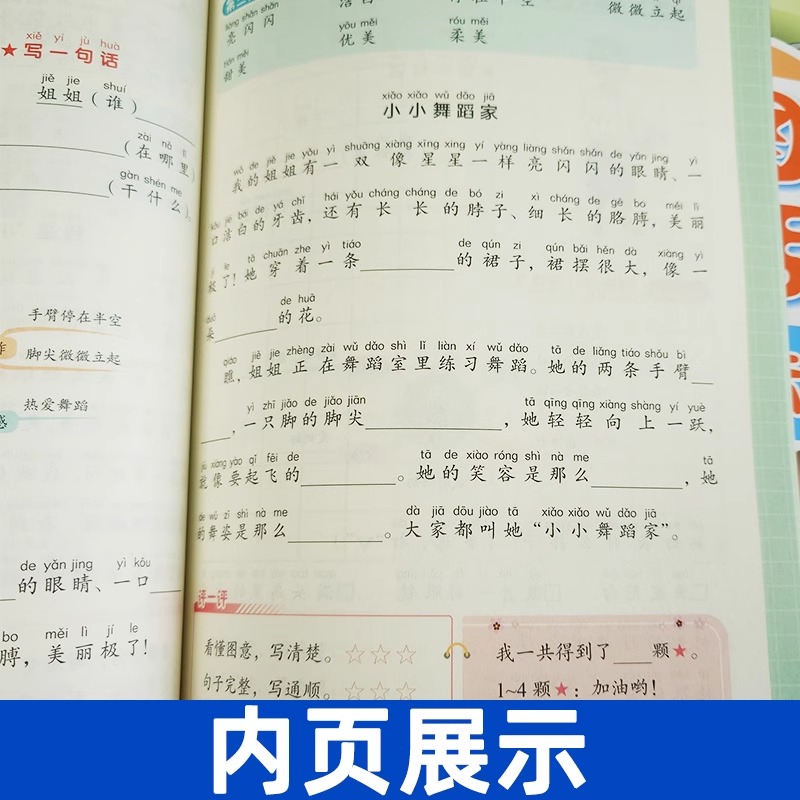 xiě yí jù huà
★写一句话
jiě jie shuí
姐姐（谁）
zài nǎ lǐ
（在哪里）
gàn shén me
（干什么）。
手臂停在半空
脚尖微微立起
热爱舞蹈
感
de yǎn jing yì kǒu
的眼睛、一口
bo měi lì jí le
膊，美丽极了！
微微立起
liàng shǎn shǎn
亮闪闪
yōu měi
优美
róu měi
柔美
tián měi
甜美
xiǎo xiǎo wǔ dǎo jiā
小小舞蹈家
wǒ de jiě jie yǒu yì shuāng xiàng xīng xing yí yàng liàng shǎn shǎn de yǎn jing yì
我的姐姐有一双像星星一样亮闪闪的眼睛、一
kǒu jié bái de yá chǐ hái yǒu cháng cháng de bó zi xì cháng de gē bo měi lì
口洁白的牙齿，还有长长的脖子、细长的胳膊，美丽
jí le tā chuān zhe yì tiáo de qún zi qún bǎi hěn dà xiàng yì
极了！她穿着一条__________的裙子，裙摆很大，像一
duǒ de huā
朵______的花。
qiáo jiě jie zhèng zài wǔ dǎo shì lǐ liàn xí wǔ dǎo tā de liǎng tiáo shǒu bì
瞧，姐姐正在舞蹈室里练习舞蹈。她的两条手臂__
yì zhī jiǎo de jiǎo jiān tā qīng qīng xiàng shàng yí yuè
___，一只脚的脚尖______________，她轻轻向上一跃，
jiù xiàng yào qǐ fēi de tā de xiào róng shì nà me tā
就像要起飞的__________。她的笑容是那么__________，她
de wǔ zī shì nà me dà jiā dōu jiào tā xiǎo xiǎo wǔ dǎo jiā
的舞姿是那么__________。大家都叫她“小小舞蹈家”。
评一评
看懂图意，写清楚。☆☆☆
句子完整，写通顺。☆☆☆
我一共得到了____颗★。
1~4 颗★：加油哟！
内页展示